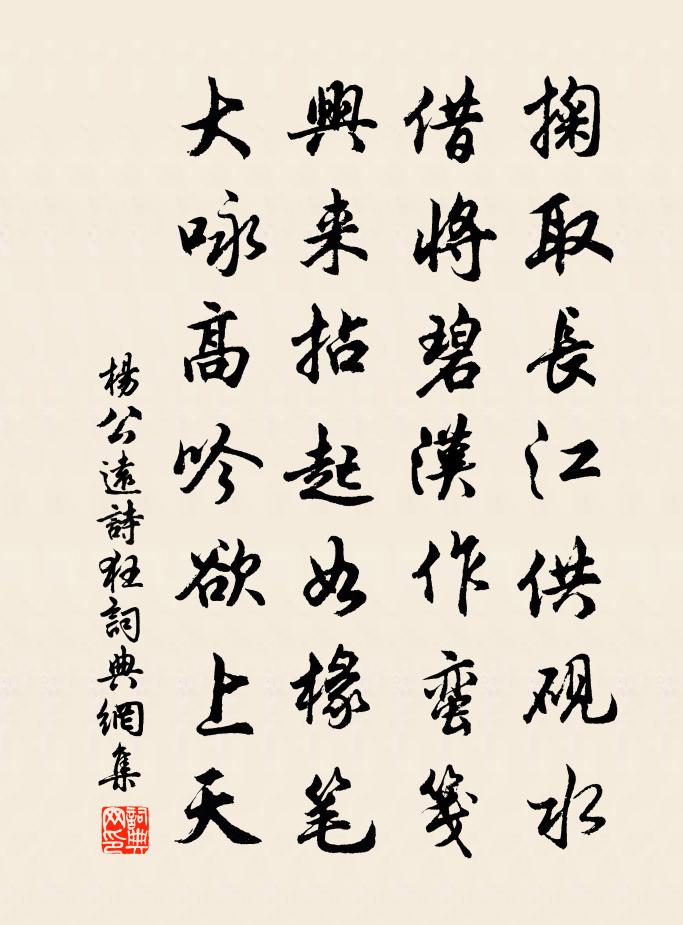 掬取長江供硯水
借將碧漢作蛮箋
興来拈起如椽笔
大咏高吟欲上天
楊公遠詩狂詞典網集
詞典网印